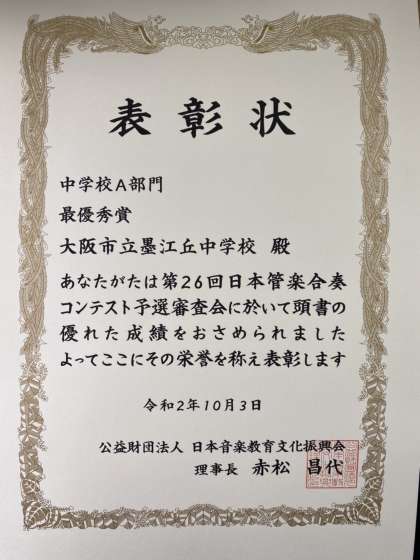 表彰状
中学校A部門
最優秀賞
大阪市立墨江丘中学校 殿
あなたがたは第26回日本管楽合奏
コンテスト予選審査会に於いて頭書の
優れた成績をおさめられました
よってここにその栄誉を称え表彰します
令和2年10月3日
公益財団法人 日本音楽教育文化振興会
理事長 赤松 昌代